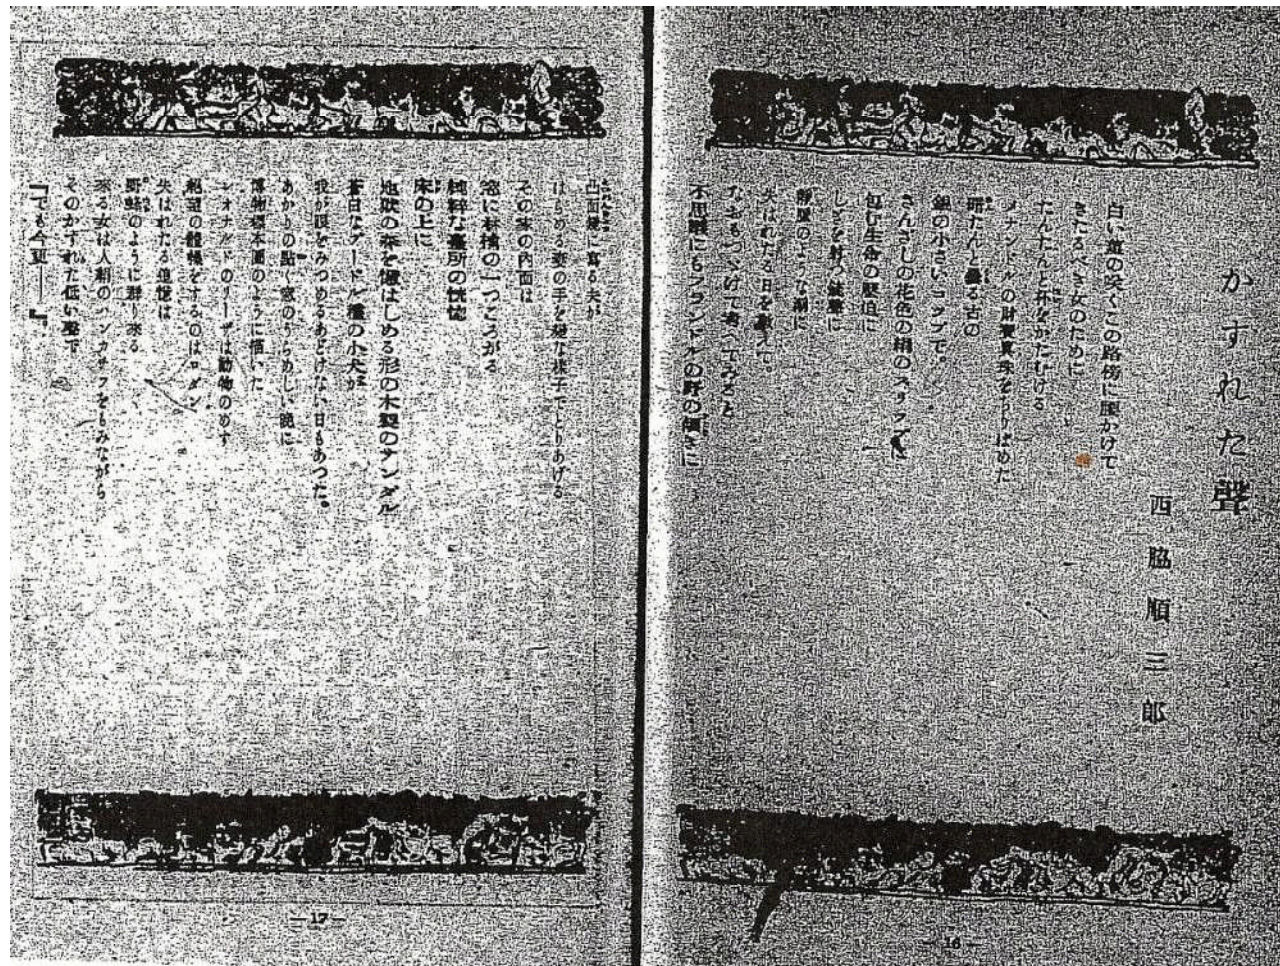 かすれた聲
西脇順三郎
白い蓮の咲くこの路傍に腰かけて
きたるべき女のために
たんたんと杯をかたむける
メナンドルの財寶眞珠をちりばめた
曇る古の
銀の小さいコップで。
さんざしの花色の絹のスリップに
包む生命の壓迫に
しぎを射つ銃聲に
のような潮に
失はれたる日を敷えて。
なほもつづけて考へてみると
不思議にもフランドルの野の傾きに
凸面鏡に寫る夫が
はらめる妻の手を
様子でとりあげる
その床の内面は
窓に林檎の一つころがる
純粹な臺所の恍惚
床の上に
地獄の來を
はじめる形の木製のサンダル
蒼白なプードル種の小犬が
我が眼をみつめるあどけない日もあつた。
あかりの點く窓のうらめしい晩に
博物標本圖のように描いた
レオナルドのリーザは動物のめす
絕望の體操をするのはロダン
失はれたる追憶は
野蜂のように群り來る
來る女は人絹のハンカチフをもみながら
そのかすれた低い聲で
『でも今更――』。
—17—
—16—